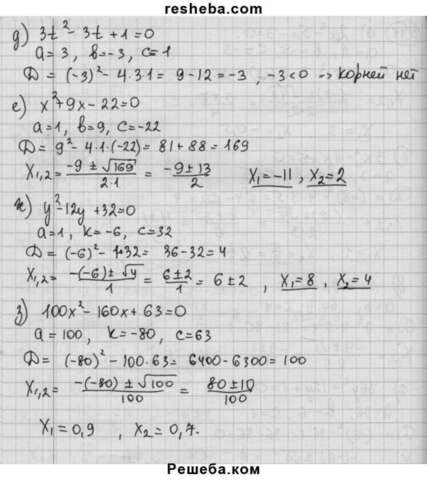 resheba.com
д) 3t² - 3t + 1 = 0
a = 3, b = -3, c = 1
D = (-3)² - 4·3·1 = 9 - 12 = -3, -3 < 0 → корней нет
е) x² + 9x - 22 = 0
a = 1, b = 9, c = -22
D = 9² - 4·1·(-22) = 81 + 88 = 169
x₁,₂ = (-9 ± √169)/(2·1) = (-9 ± 13)/2   x₁ = -11, x₂ = 2
ж) y² - 12y + 32 = 0
a = 1, k = -6, c = 32
D = (-6)² - 1·32 = 36 - 32 = 4
x₁,₂ = (-(-6) ± √4)/1 = (6 ± 2)/1 = 6 ± 2, x₁ = 8, x₂ = 4
з) 100x² - 160x + 63 = 0
a = 100, k = -80, c = 63
D = (-80)² - 100·63 = 6400 - 6300 = 100
x₁,₂ = (-(-80) ± √100)/100 = (80 ± 10)/100
x₁ = 0,9, x₂ = 0,7.
Решеба.ком